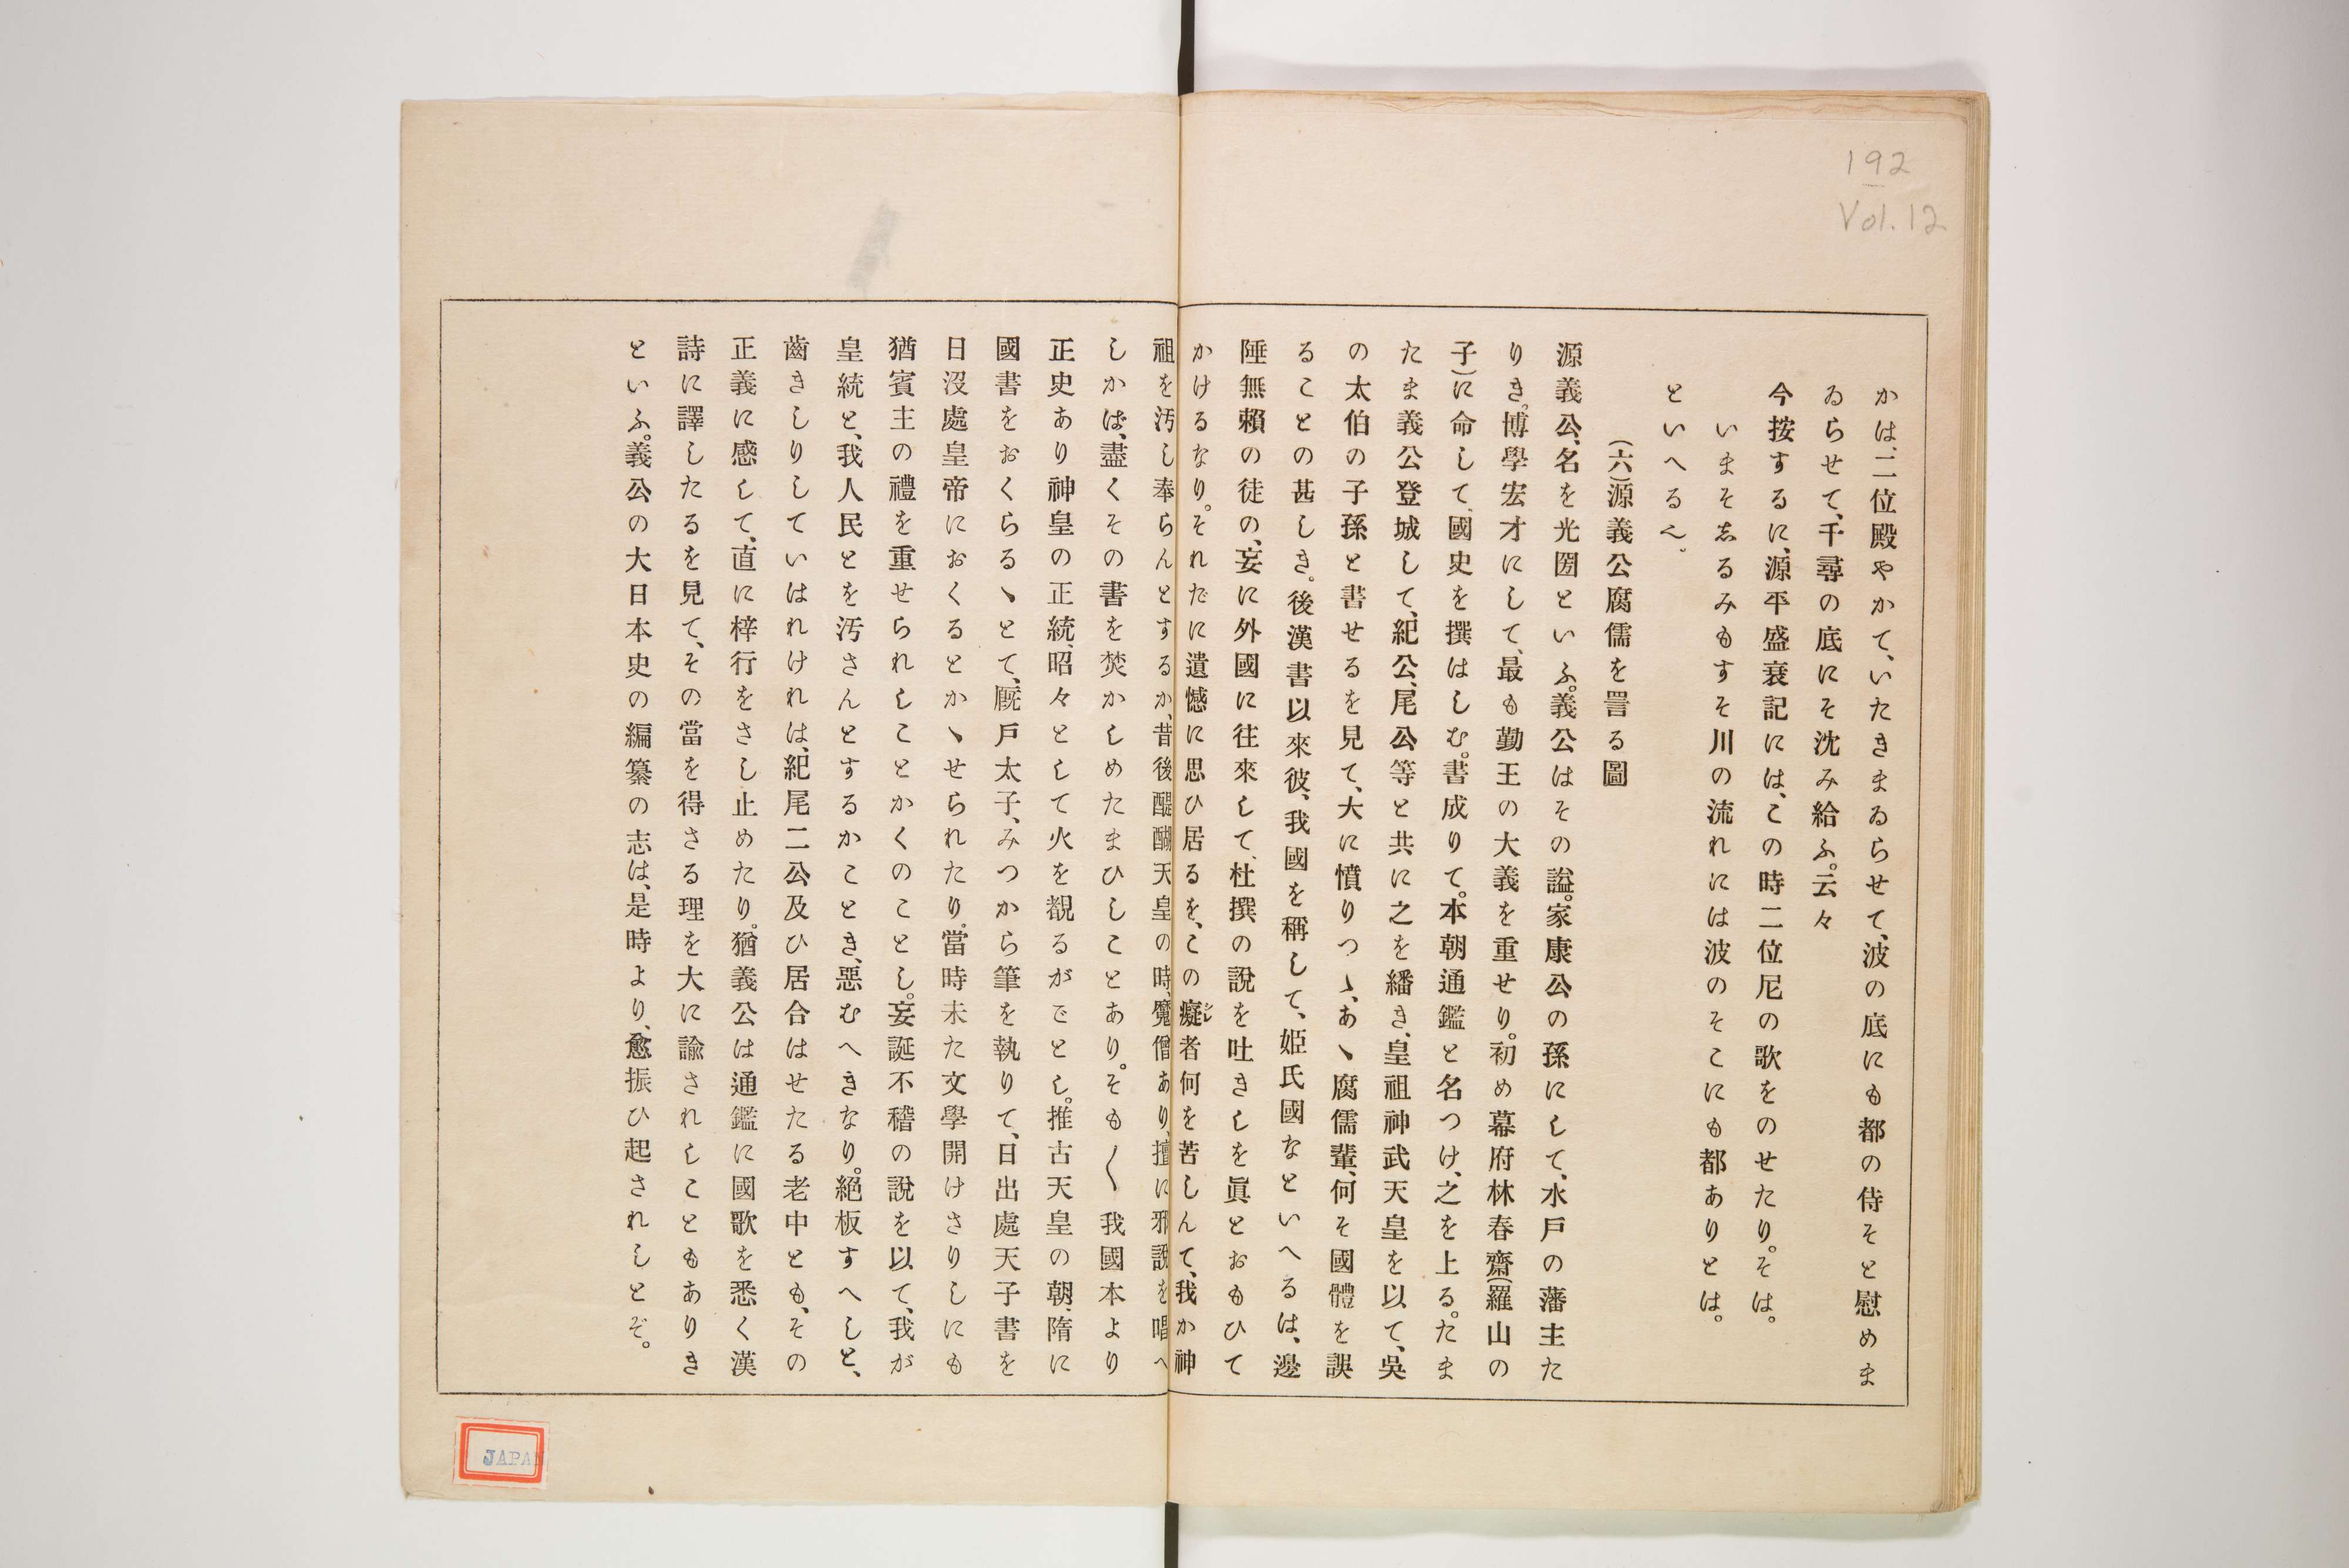 192
Vol. 12
かは、二位殿やかて、いたきまゐらせて、波の底にも都の侍そと慰めま
ゐらせて、千尋の底にそ沈み給ふ。云々
今按するに、源平盛衰記には、この時二位尼の歌をのせたり。そは。
いまそゑるみもすそ川の流れには波のそこにも都ありとは。
といへる
(六)源義公腐儒を詈る圖
源義公、名を光圀といふ。義公はその謚。家康公の孫にして、水戸の藩主た
りき。博學宏才にして、最も勤王の大義を重せり。初め幕府林春齋(羅山の
子)に命して、國史を撰はしむ。書成りて。本朝通鑑と名つけ、之を上る。たま
たま義公登城して、紀公、尾公等と共に之を繙き、皇祖神武天皇を以て、吳
の太伯の子孫と書せるを見て、大に憤りつゝ、あゝ腐儒輩、何そ國體を誤
ることの甚しき。後漢書以來彼、我國を稱して、姫氏國なといへるは、邊
陲無賴の徒の、妄に外國に往來して、杜撰の說を吐きしを眞とおもひて
かけるなり。それだに遺憾に思ひ居るを、この癡者何を苦しんて、我か神
シレ
祖を汚し奉らんとするか、昔後醍醐天皇の時、魔僧あり、擅に邪說を唱へ
しかば、盡くその書を焚かしめたまひしことあり。そも〱我國本より
正史あり神皇の正統、昭々として火を覩るがごとし。推古天皇の朝、隋に
國書をおくらるゝとて、厩戸太子、みつから筆を執りて、日出處天子書を
日沒處皇帝におくるとかゝせられたり。當時未た文學開けさりしにも
猶賓主の禮を重せられしことかくのことし。妄誕不稽の說を以て、我が
皇統と、我人民とを汚さんとするかことき、惡むへきなり。絕板すへしと、
齒きしりしていはれけれは、紀尾二公及ひ居合はせたる老中とも、その
正義に感して、直に梓行をさし止めたり。猶義公は通鑑に國歌を悉く漢
詩に譯したるを見て、その當を得さる理を大に諭されしこともありき
といふ。義公の大日本史の編纂の志は、是時より、愈振ひ起されしとぞ。
JAPAN